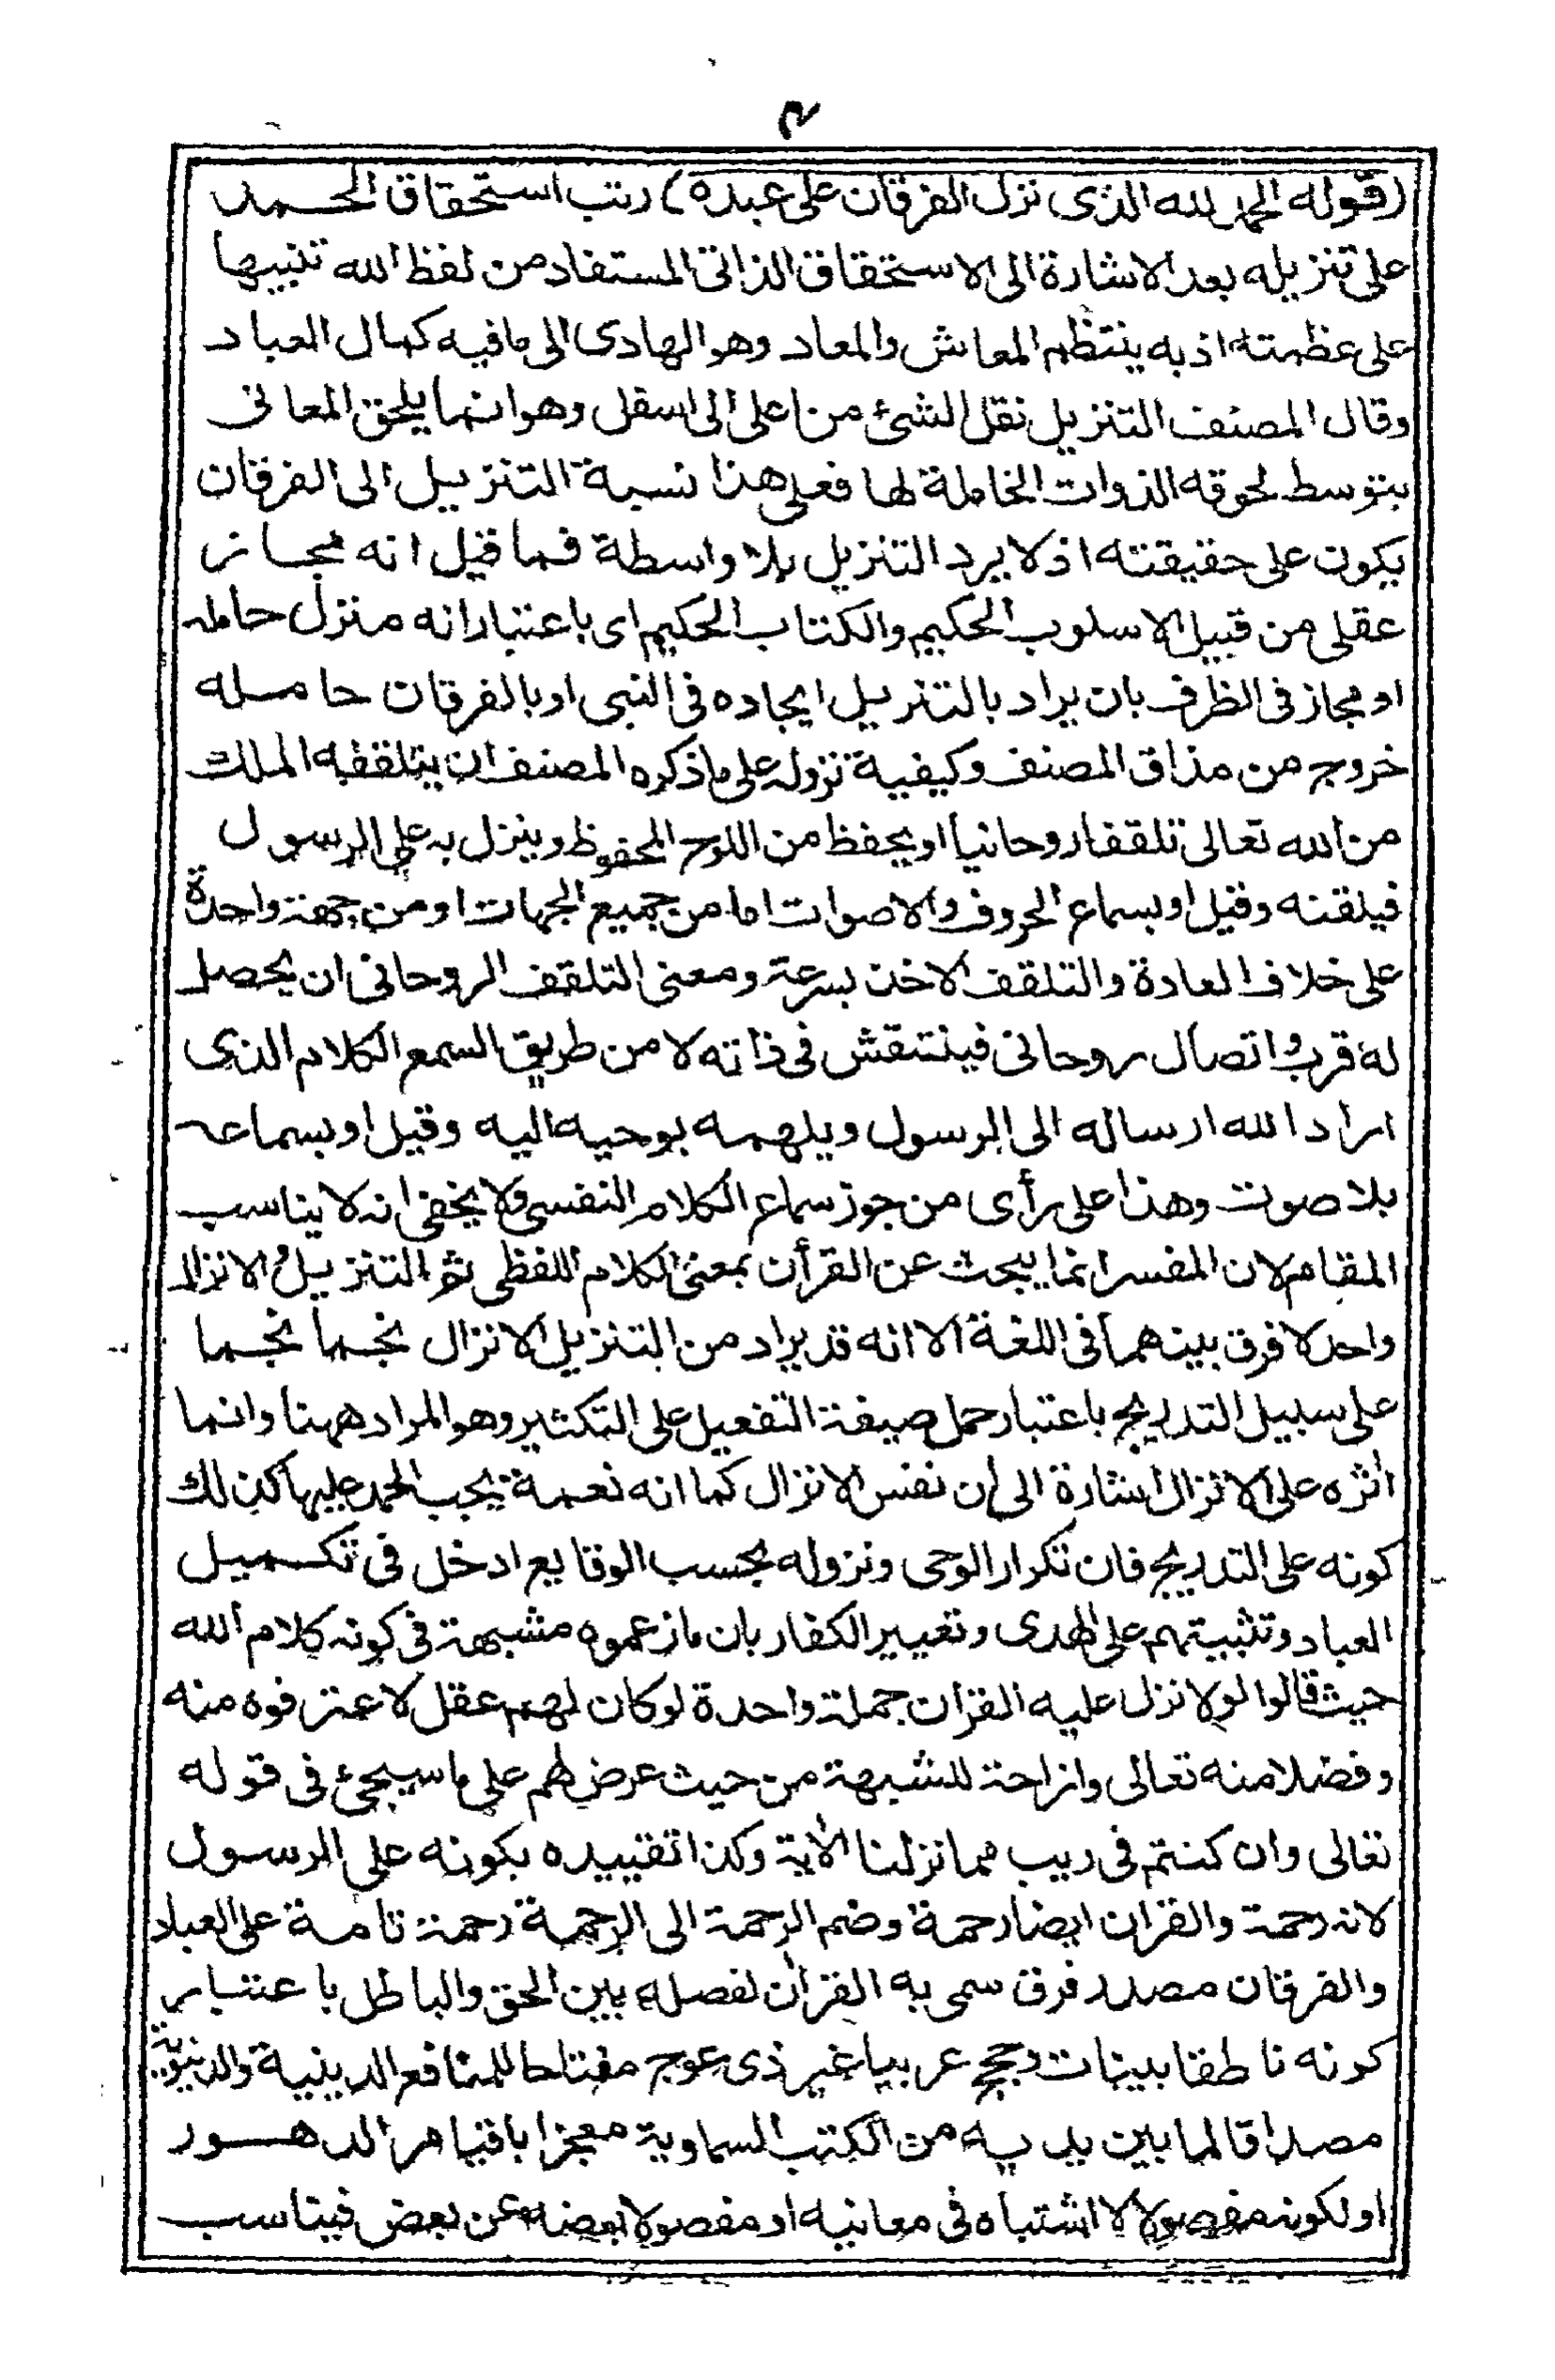 ٣
(قوله الحمد لله الذى نزل الفرقان على عبده) رتب استحقاق الحمد
على تنزيله بعد الاشارة الى الاستحقاق الذاتى المستفاد من لفظ الله تنبيها
على عظمته اذ به ينتظم المعاش والمعاد وهو الهادى الى ما فيه كمال العباد
وقال المصنف التنزيل نقل الشئ من اعلى الى اسفل وهو انما يلحق المعانى
بتوسط لحوقه الذوات الحاملة لها فعلى هذا نسبة التنزيل الى الفرقان
يكون على حقيقته اذ لا يرد التنزيل بلا واسطة فما قيل انه مجاز
عقلى من قبيل الاسلوب الحكيم والكتاب الحكيم اى باعتبار انه منزل حامله
او مجاز فى الظرف بان يراد بالتنزيل ايجاده فى النبى او بالفرقان حامله
خروج من مذاق المصنف وكيفية نزوله على ما ذكره المصنف ان يتلقفه الملك
من الله تعالى تلقفا روحانيا او يحفظ من اللوح المحفوظ وينزل به على الرسول
فيلقنه وقيل او بسماع الحروف والاصوات اما من جميع الجهات او من جهة واحدة
على خلاف العادة والتلقف الاخذ بسرعة ومعنى التلقف الروحانى ان يحصل
له قرب واتصال روحانى فينتقش فى ذاته لا من طريق السمع الكلام الذى
اراد الله ارساله الى الرسول ويلهمه بوحيه اليه وقيل او بسماعه
بلا صوت وهذا على رأى من جوز سماع الكلام النفسى ولا يخفى انه لا يناسب
المقام لان المفسر انما يبحث عن القرأن بمعنى الكلام اللفظى ثم التنزيل والانزال
واحد لا فرق بينهما فى اللغة الا انه قد يراد من التنزيل الانزال نجما نجما
على سبيل التدريج باعتبار حمل صيغة التفعيل على التكثير وهو المراد ههنا وانما
اثره على الانزال اشارة الى ان نفس الانزال كما انه نعمة يجب الحمد عليها كذلك
كونه على التدريج فان تكرار الوحى ونزوله بحسب الوقايع ادخل فى تكميل
العباد وتثبيتهم على الهدى وتعيير الكفار بان ما زعموه مشبهة فى كونه كلام الله
حيث قالوا لولا نزل عليه القران جملة واحدة لو كان لهم عقل لاعترفوه منه
وفضلا منه تعالى وازاحة للشبهة من حيث عرض لهم على ما سيجئ فى قوله
تعالى وان كنتم فى ريب مما نزلنا الآية وكذا تقييده بكونه على الرسول
لانه رحمة والقران ايضا رحمة وضم الرحمة الى الرحمة رحمة تامة على العباد
والفرقان مصدر فرق سمى به القران لفصله بين الحق والباطل باعتبار
كونه ناطقا ببينات وحجج عربيا غير ذى عوج مفتاحا للمنافع الدينية والدنيوية
مصداقا لما بين يديه من الكتب السماوية معجزا باقيا مر الدهور
او لكونه مفصولا لا اشتباه فى معانيه او مفصولا بعضه عن بعض فيناسب